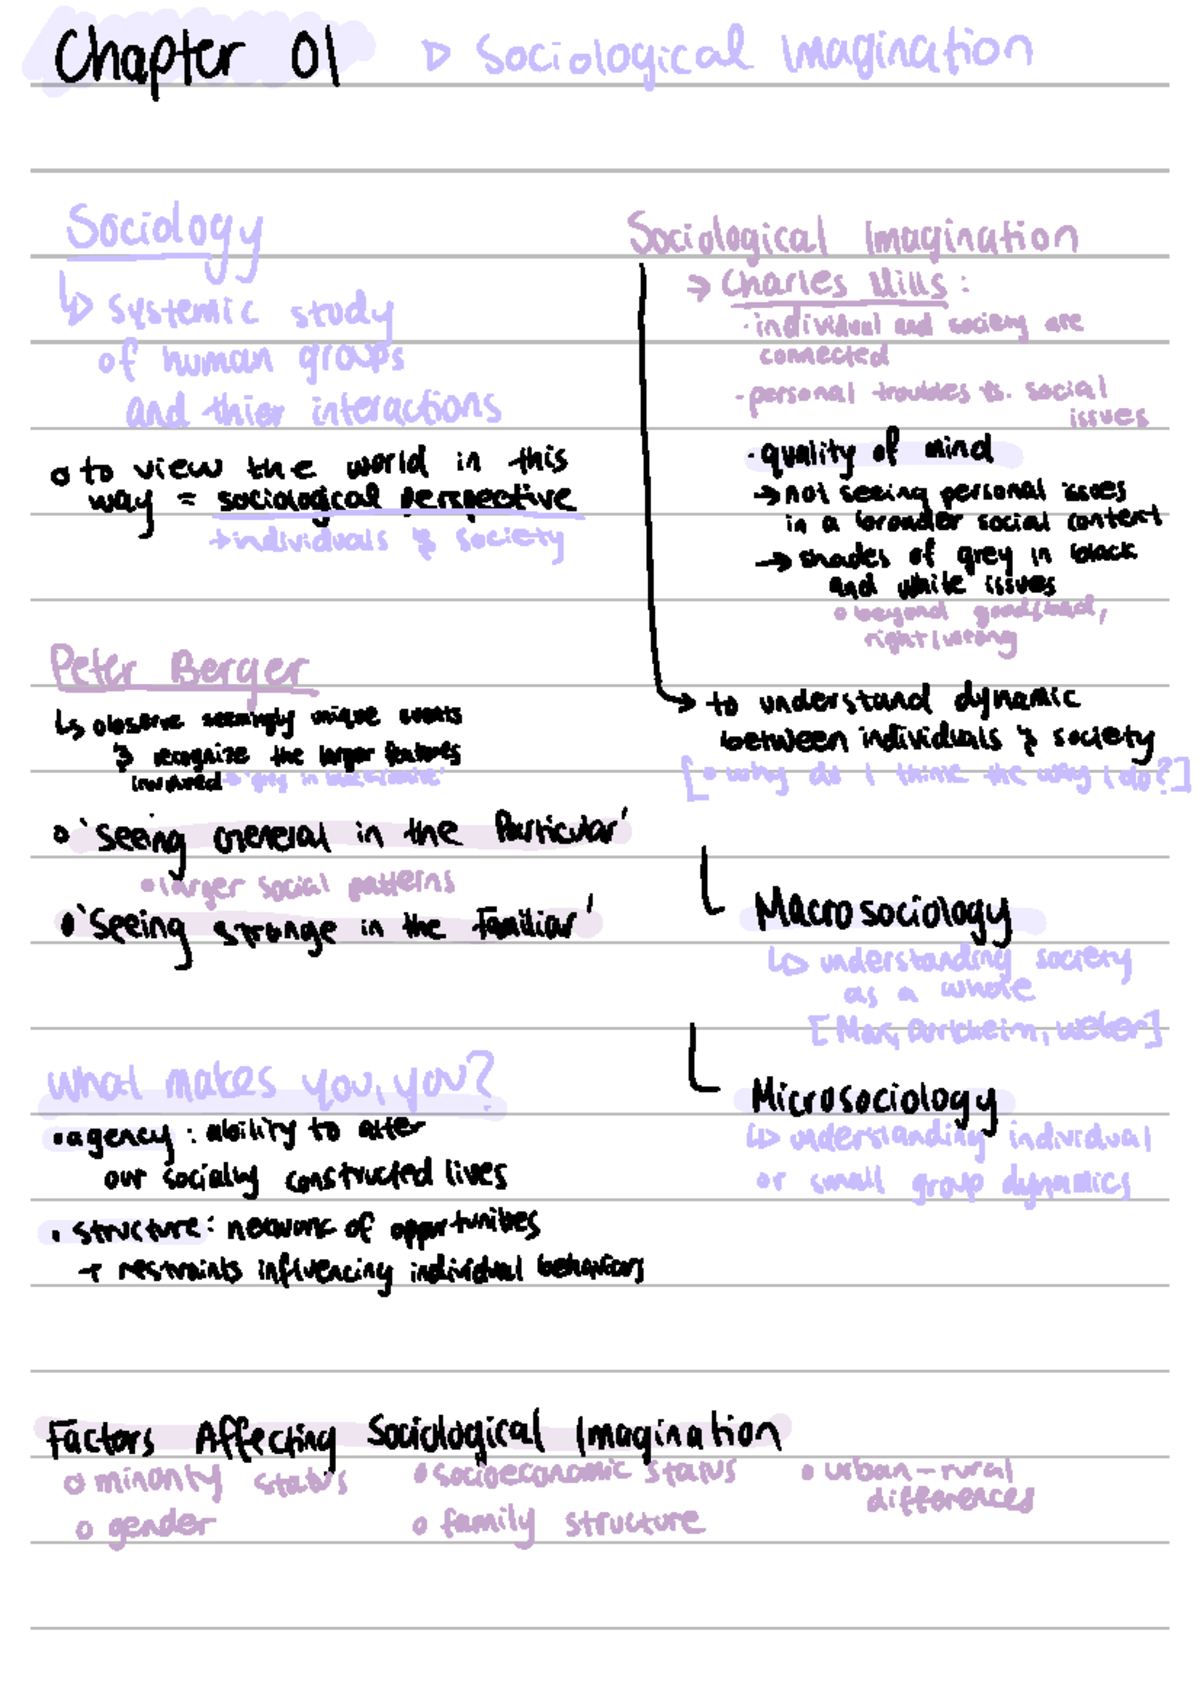 Chapter 01 ▷ Sociological Imagination
Sociology
↳ systemic study
of human groups
and thier interactions
o to view the world in this
way = sociological perspective
→ individuals & society
Peter Berger
↳ observe seemingly unique events
& recognize the larger features
involved
o 'Seeing General in the Particular'
• larger social patterns
• 'Seeing strange in the Familiar'
what makes you, you?
• agency : ability to alter
our socially constructed lives
• structure : network of opportunities
+ restraints influencing individual behaviors
Sociological Imagination
→ Charles Mills :
· individual and society are
connected
- personal troubles vs. social
issues
· quality of mind
→ not seeing personal issues
in a broader social context
→ shades of grey in black
and white issues
o beyond good/bad,
right/wrong
→ to understand dynamic
between individuals & society
[ • why do I think the way I do? ]
Macrosociology
↳ understanding society
as a whole
[Marx, Durkheim, Weber]
Microsociology
↳ understanding individual
or small group dynamics
Factors Affecting Sociological Imagination
o minority status • socioeconomic status • urban-rural
differences
o gender o family structure